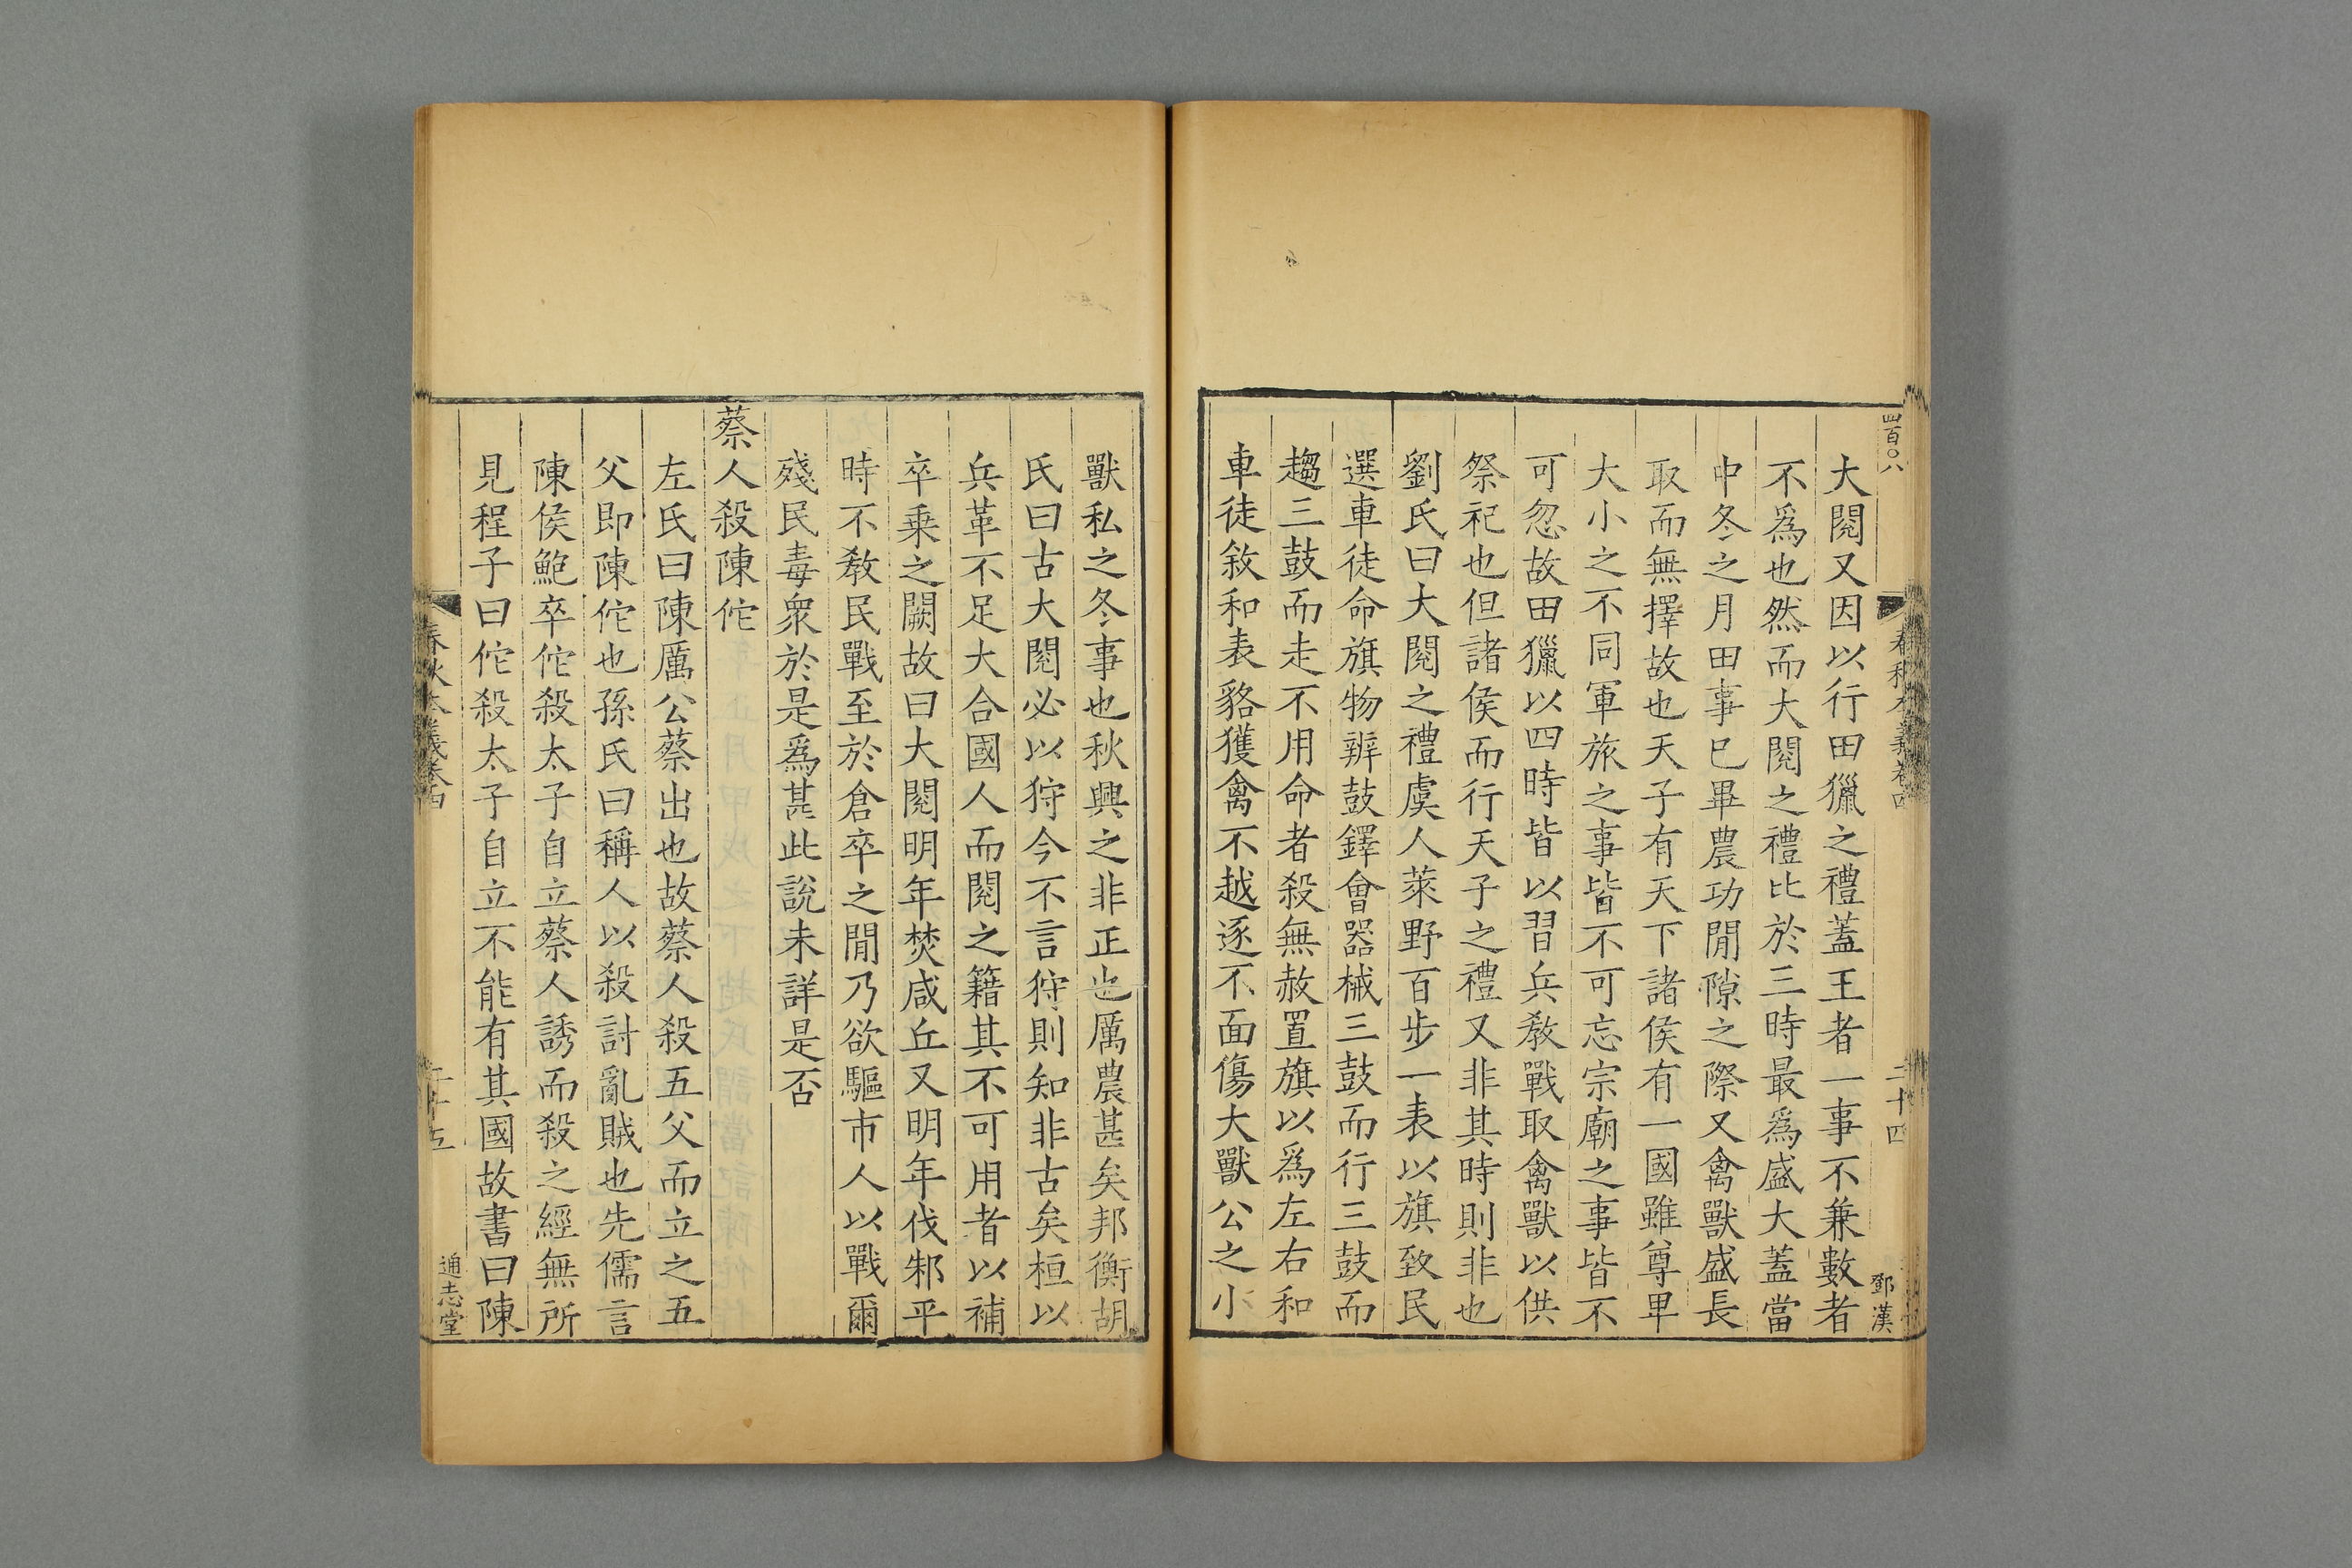 四百〇八
春秋本義卷四
二十四
鄧漢
大閱又因以行田獵之禮蓋王者一事不兼數者
不爲也然而大閱之禮比於三時最爲盛大蓋當
中冬之月田事巳畢農功閒隙之際又禽獸盛長
取而無擇故也天子有天下諸侯有一國雖尊卑
大小之不同軍旅之事皆不可忘宗廟之事皆不
可忽故田獵以四時皆以習兵敎戰取禽獸以供
祭祀也但諸侯而行天子之禮又非其時則非也
劉氏曰大閱之禮虞人萊野百步一表以旗致民
選車徒命旗物辨鼓鐸會器械三鼓而行三鼓而
趨三鼓而走不用命者殺無赦置旗以爲左右和
車徒敘和表貉獲禽不越逐不面傷大獸公之小
獸私之冬事也秋興之非正也厲農甚矣邦衡胡
氏曰古大閱必以狩今不言狩則知非古矣桓以
兵革不足大合國人而閱之籍其不可用者以補
卒乗之闕故曰大閱明年焚咸丘又明年伐邾平
時不敎民戰至於倉卒之閒乃欲驅市人以戰爾
殘民毒衆於是爲甚此說未詳是否
蔡人殺陳佗
左氏曰陳厲公蔡出也故蔡人殺五父而立之五
父即陳佗也孫氏曰稱人以殺討亂賊也先儒言
陳侯鮑卒佗殺太子自立蔡人誘而殺之經無所
見程子曰佗殺太子自立不能有其國故書曰陳
春秋本義卷四
二十五
通志堂